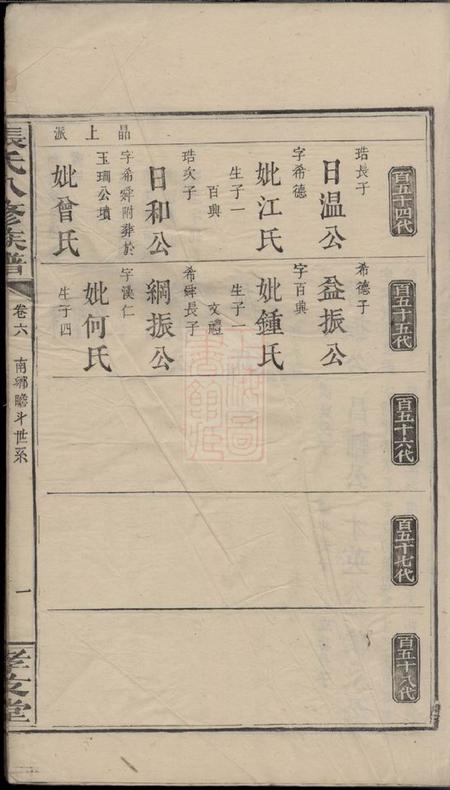 百五十四代
琣長子
日温公
字希德
妣江氏
生子一
百興
琣次子
日和公
字希舜附葬於
玉珊公墳
妣曾氏
晶上派
百五十五代
希德子
益振公
字百興
妣鍾氏
生子一
文禮
希舜長子
綱振公
字漢仁
妣何氏
生子四
百五十六代
百五十七代
百五十八代
張氏八修族譜
卷六
南鄉瞻斗世系
一
孝友堂